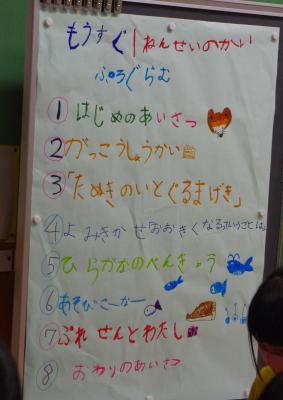 もうすぐ1ねんせいのかい
ぷろぐらむ
① はじめのあいさつ
② がっこうしょうかい
③「たぬきのいとぐるまげき」
④ よみきかせおおきくなるっていうことは
⑤ ひらがなのべんきょう
⑥ あそびこーなー
⑦ ぷれぜんとわたし
⑧ おわりのあいさつ